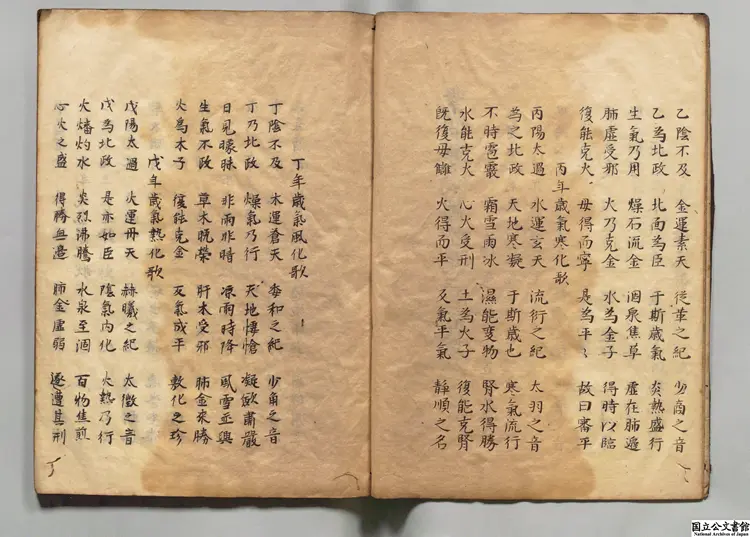 乙陰不及　金運素天　從革之紀　少商之音
乙為北政　北面為臣　于斯歳氣　炎熱盛行
生氣乃用　燥石流金　涸泉焦草　虛在肺邉
肺虛受邪　火乃克金　水為金子　得時以臨
復能克火　母得而寧　是為平〻　故曰審平
丙年歳氣寒化歌
丙陽太過　水運玄天　流衍之紀　太羽之音
為之北政　天地寒凝　于斯歳也　寒氣流行
不時雹霰　霜雪雨冰　濕能変物　腎水得勝
水能克火　心火受刑　土為火子　復能克腎
既復母雠　火得而平　又氣平氣　靜順之名
丁年歳氣風化歌
丁陰不及　木運蒼天　委和之紀　少角之音
丁乃北政　燥氣乃行　天地悽愴　凝歛肅嚴
日見曚昧　非雨非晴　凉雨時降　風雪並興
生氣不政　草木晩榮　肝木受邪　肺金来勝
火為木子　復能克金　又氣成平　敷化之珍
戊年歳氣熱化歌
戊陽太過　火運丹天　赫曦之紀　太徴之音
戊為北政　是亦如臣　陰氣内化　火熱乃行
火燔灼水　炎烈沸騰　水泉至涸　百物焦煎
心火之盛　得勝無邉　肺金虛弱　遂遭其刑
国立公文書館
National Archives of Japan